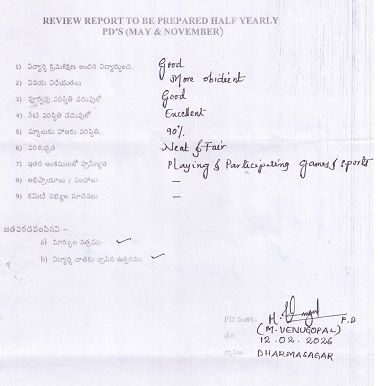 REVIEW REPORT TO BE PREPARED HALF YEARLY
PD'S (MAY & NOVEMBER)
1) విద్యార్థి క్రమశిక్షణ Good
2) వినయ విధేయతలు More obidient
3) పరిస్థితి చదువులో Good
4) నేటి పరిస్థితి చదువులో Excellent
5) స్కూలుకు హాజరు పరిస్థితి. 90%
6) పరిశుభ్రత Neat & Fair
7) ఇతర అంశములలో ప్రావీణ్యత Playing & Participating games & sports
8) అభిప్రాయాలు / సలహాలు —
9) కమిటీ సభ్యుల సూచనలు —
జతపరచవలసినవి –
a) మార్కుల పత్రము ✓
b) విద్యార్థి దాతకు వ్రాసిన ఉత్తరము ✓
PD సంతకం P.D
(M. VENUGOPAL)
తేది 12.02.2026
DHARMASAGAR